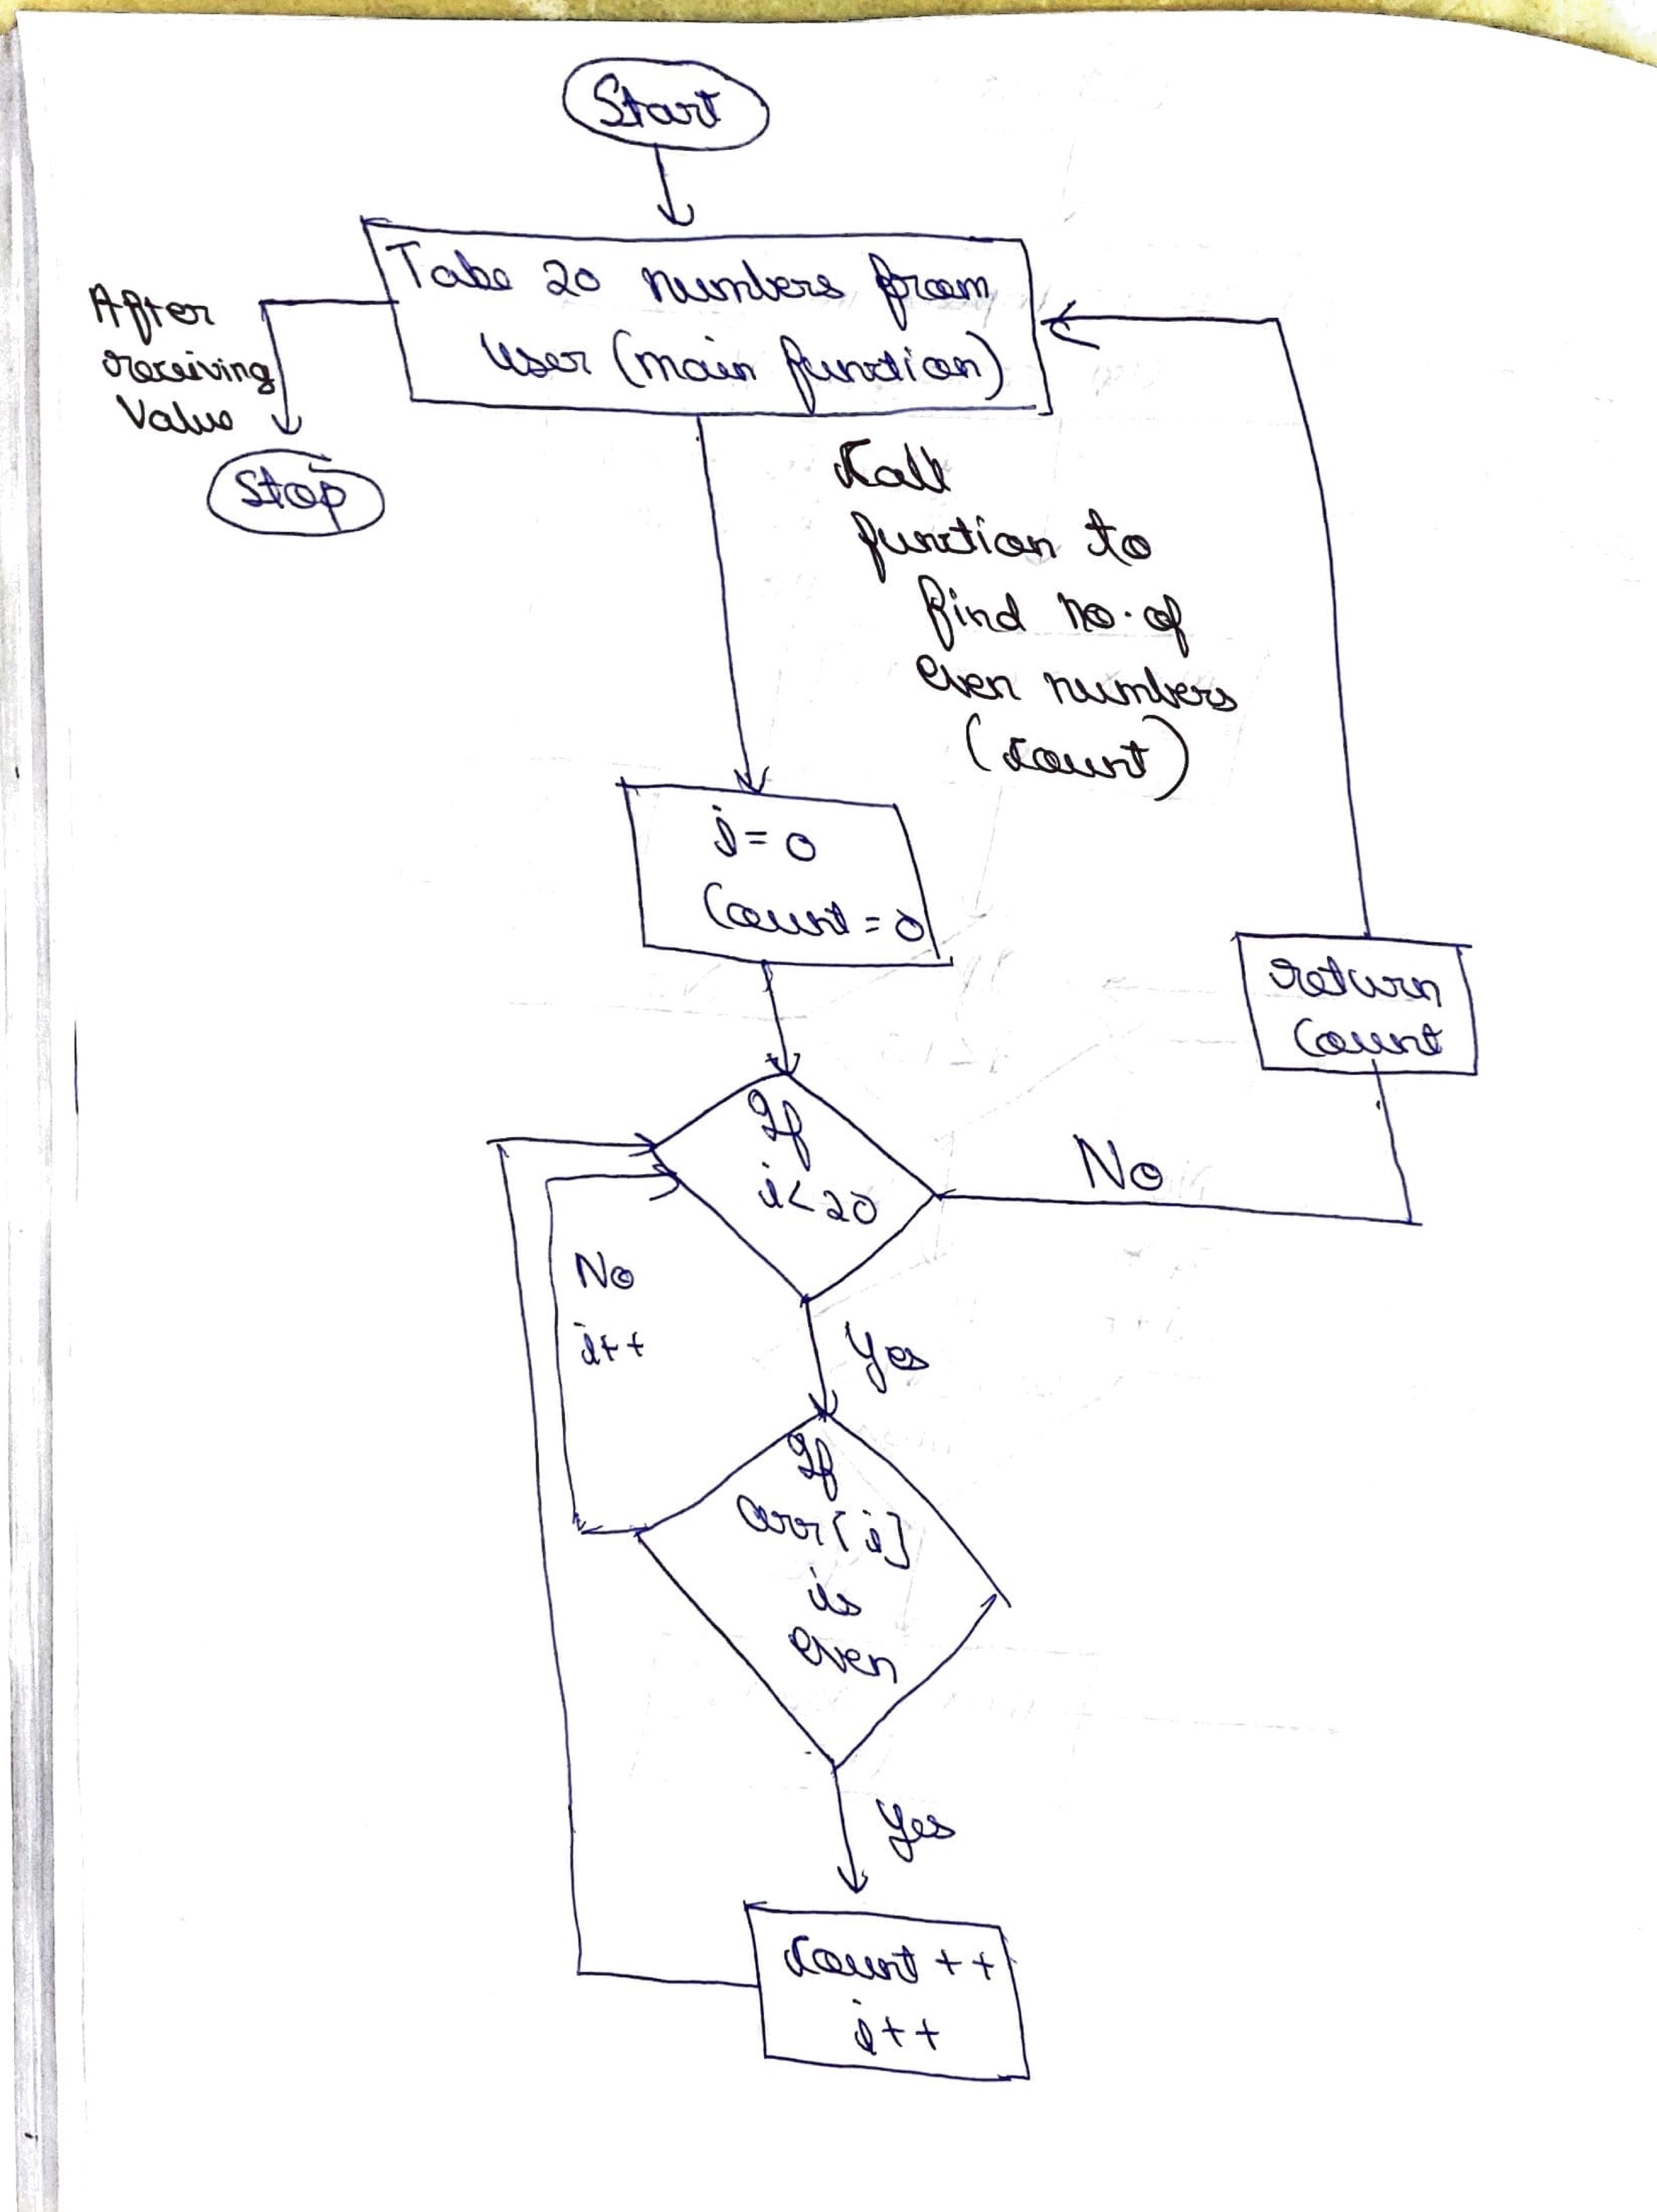 Start
Take 20 numbers from
User (main function)
After
receiving
Value
Stop
Call
function to
find no. of
even numbers
(count)
i = 0
Count = 0
return
Count
If
i < 20
No
No
i++
Yes
If
arr[i]
is
even
Yes
Count ++
i++